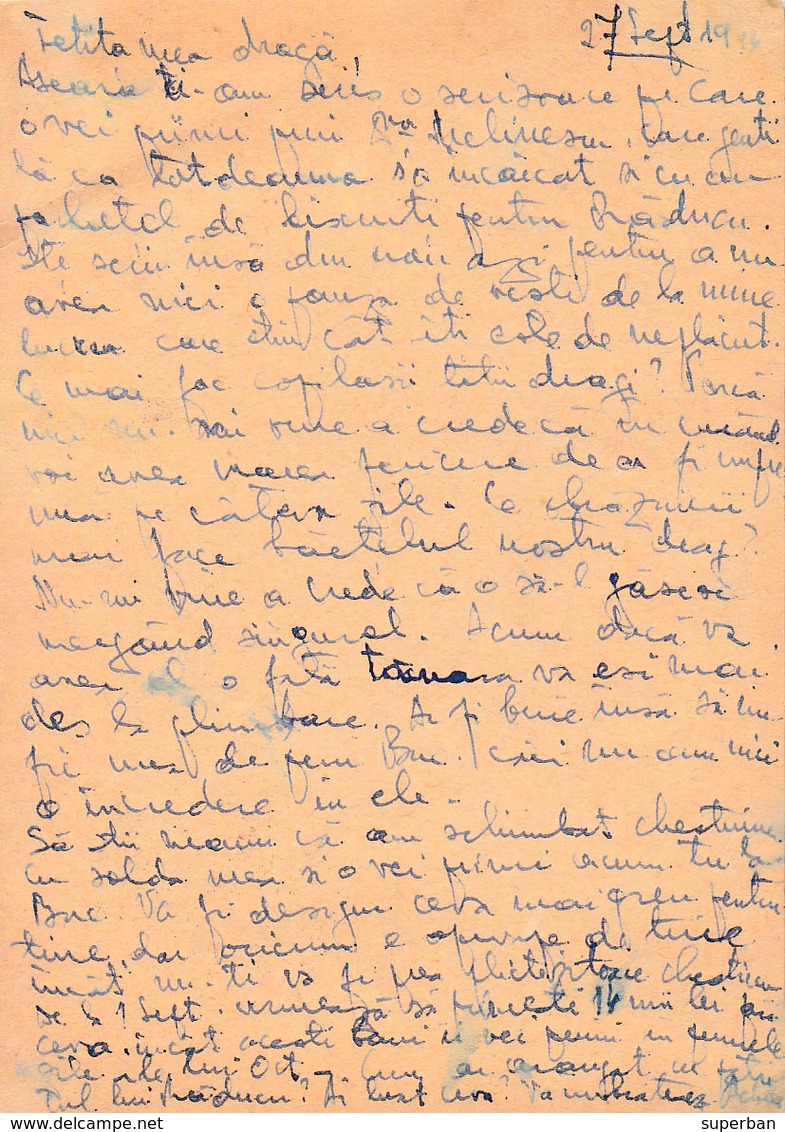 27 Sept 19
Fetita mea dragă,
Aseară ti-am scris o scrisoare pe care
o vei primi prin Dna care genti
lă ca totdeauna s'a incărcat si cu un
pachetel de biscuiti pentru Răducu.
Iti scriu însă din nou azi pentru a nu
avea nici o pauza de vesti de la mine
lucru care stiu cât iti este de neplăcut.
Ce mai fac copilasii tătii dragi? Parcă
nici nu-mi vine a crede că în curând
voi avea marea fericire de a fi impre
ună pe câteva zile. Ce
mai face băetelul nostru drag?
Nu-mi vine a crede că o să-l găsesc
mergând singurel. Acum dacă va
avea si o fată tânara va esi mai
des la plimbare. Ar fi bine însă să nu
fie prea de prin Buc. căci nu am nici
o incredere in ele.
Să stii neamu că am schimbat chestiunea
cu solda mea si o vei primi acum tu la
Buc. Va fi desigur ceva mai greu pentru
tine, dar oricum e aproape de tine
încât nu-ti va fi prea plictisitoare chestiunea
de la 1 Sept. urmează să primesti 14 mii lei si
ceva, incât acesti bani ii vei primi in primele
zile ale lui Oct - Cum ai aranjat cu
lui Răducu? Ai luat ceva? Va imbratiseaza
superban